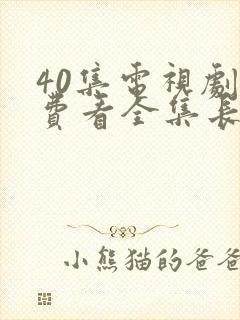 40集電視劇
費看全集長
小熊猫的爸爸